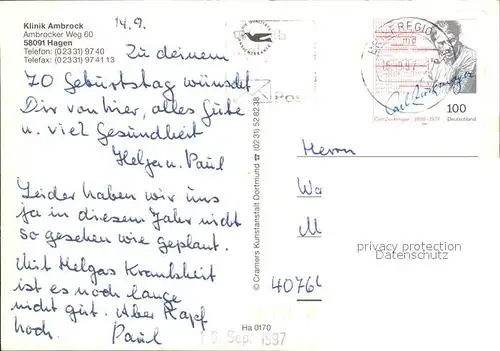 Klinik Ambrock
Ambrocker Weg 60
58091 Hagen
Telefon: (0 23 31) 97 40
Telefax: (0 23 31) 97 41 13
14.9.
Zu deinem
70 Geburtstag wünscht
Dir von hier, alles Gute
u. viel Gesundheit
Helga u. Paul
Leider haben wir uns
ja in diesem Jahr nicht
so gesehen wie geplant.
Mit Helgas Krankheit
ist es noch lange
nicht gut. Aber Kopf
hoch. Paul
© Cramers Kunstanstalt Dortmund ☎ (02 31) 52 82 38
Ha 0170
Post
Carl Zuckmayer
100
Carl Zuckmayer 1896-1977
Deutschland
Herrn
Wa
M
privacy protection
Datenschutz
40764
Sep. 1997